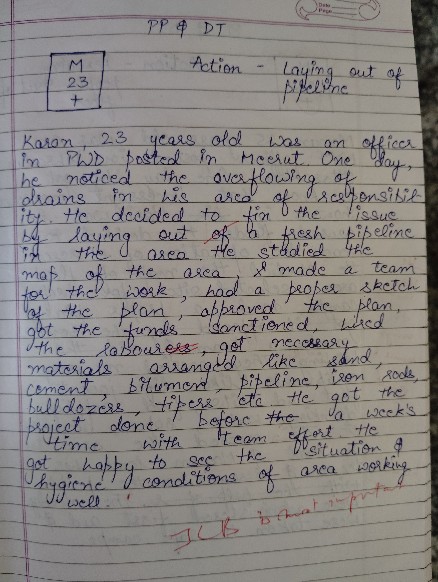 Date
Page
PP & DT
M
23
+
Action - Laying out of
pipeline
Karan, 23 years old was an officer
in PWD posted in Meerut. One day,
he noticed the overflowing of
drains in his area of responsibil
ity. He decided to fix the issue
by laying out of a fresh pipeline
in the area. He studied the
map of the area, & made a team
for the work, had a proper sketch
of the plan, approved the plan,
got the funds sanctioned, hired
the labourers, got necessary
materials arranged like sand,
cement, bitumen, pipeline, iron rods,
bulldozers, tipers etc. He got the
project done before the a week's
time with team effort. He
got happy to see the situation &
hygiene conditions of area working
well.
JCB is most important